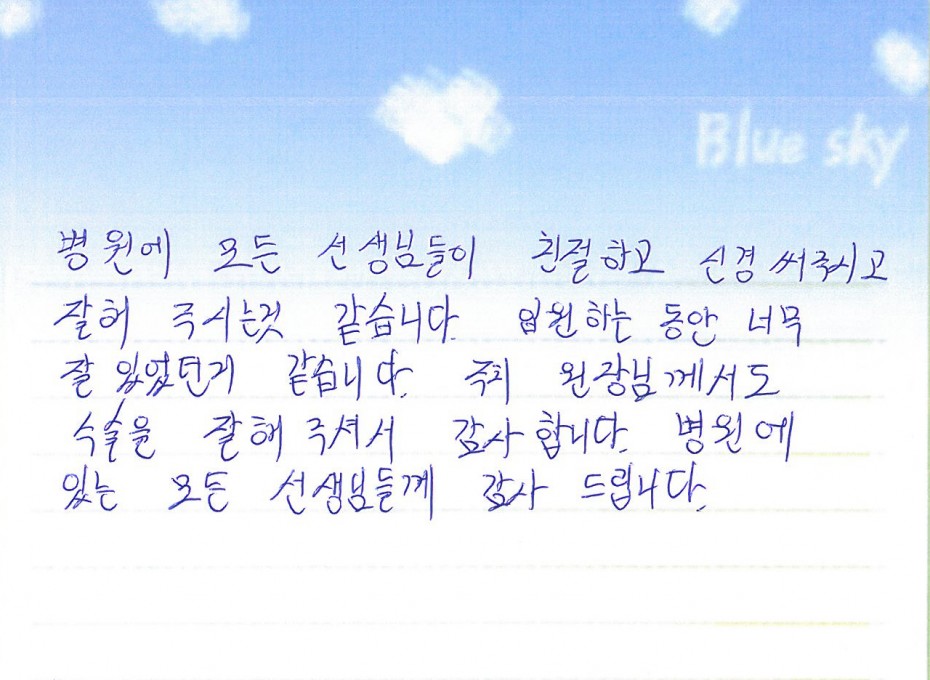 Blue sky
병원에 모든 선생님들이 친절하고 신경 써주시고
잘해 주시는것 같습니다. 입원하는 동안 너무
잘 있었던거 같습니다. 원장님께서도
수술을 잘해 주셔서 감사합니다. 병원에
있는 모든 선생님들께 감사 드립니다.